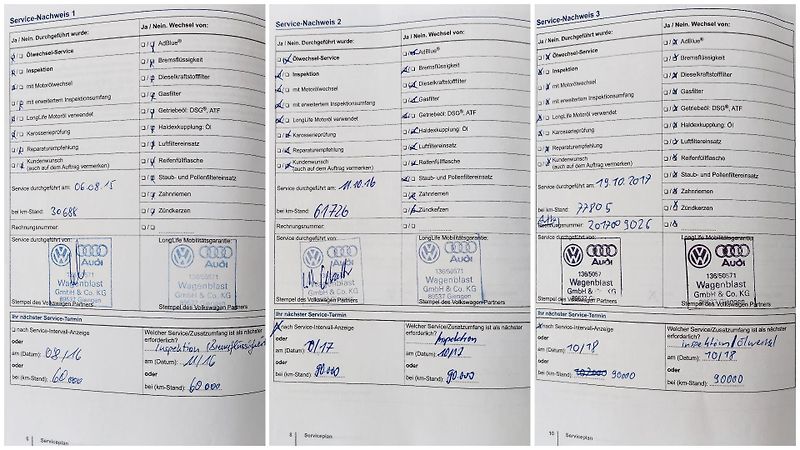 Service-Nachweis 1
Ja / Nein. Durchgeführt wurde:
Ölwechsel-Service
Inspektion
mit Motorölwechsel
mit erweitertem Inspektionsumfang
LongLife Motoröl verwendet
Karosserieprüfung
Reparaturempfehlung
Kundenwunsch
(auch auf dem Auftrag vermerken)
Service durchgeführt am: 06.08.15
bei km-Stand: 30688
Rechnungsnummer:
Ja / Nein. Wechsel von:
AdBlue®
Bremsflüssigkeit
Dieselkraftstofffilter
Gasfilter
Getriebeöl: DSG®, ATF
Haldexkupplung: Öl
Luftfiltereinsatz
Reifenfüllflasche
Staub- und Pollenfiltereinsatz
Zahnriemen
Zündkerzen
Service durchgeführt von:
Audi
136/50571
Wagenblast
GmbH & Co. KG
89537 Giengen
Stempel des Volkswagen Partners
LongLife Mobilitätsgarantie:
Audi
136/50571
Wagenblast
GmbH & Co. KG
89537 Giengen
Stempel des Volkswagen Partners
Ihr nächster Service-Termin
nach Service-Intervall-Anzeige
oder
am (Datum): 08/16
oder
bei (km-Stand): 60000
Welcher Service/Zusatzumfang ist als nächster
erforderlich?
Inspektion Bremsflüssigkeit
am (Datum): 11/16
oder
bei (km-Stand): 60.000
Serviceplan
Service-Nachweis 2
Ja / Nein. Durchgeführt wurde:
Ölwechsel-Service
Inspektion
mit Motorölwechsel
mit erweitertem Inspektionsumfang
LongLife Motoröl verwendet
Karosserieprüfung
Reparaturempfehlung
Kundenwunsch
(auch auf dem Auftrag vermerken)
Service durchgeführt am: 11.10.16
bei km-Stand: 61726
Rechnungsnummer:
Ja / Nein. Wechsel von:
AdBlue®
Bremsflüssigkeit
Dieselkraftstofffilter
Gasfilter
Getriebeöl: DSG®, ATF
Haldexkupplung: Öl
Luftfiltereinsatz
Reifenfüllflasche
Staub- und Pollenfiltereinsatz
Zahnriemen
Zündkerzen
Service durchgeführt von:
Audi
136/50571
Wagenblast
GmbH & Co. KG
89537 Giengen
Stempel des Volkswagen Partners
LongLife Mobilitätsgarantie:
Audi
136/50571
Wagenblast
GmbH & Co. KG
89537 Giengen
Stempel des Volkswagen Partners
Ihr nächster Service-Termin
nach Service-Intervall-Anzeige
oder
am (Datum): 10/17
oder
bei (km-Stand): 90.000
Welcher Service/Zusatzumfang ist als nächster
erforderlich?
Inspektion
am (Datum): 10/17
oder
bei (km-Stand): 90.000
8 Serviceplan
Service-Nachweis 3
Ja / Nein. Durchgeführt wurde:
Ölwechsel-Service
Inspektion
mit Motorölwechsel
mit erweitertem Inspektionsumfang
LongLife Motoröl verwendet
Karosserieprüfung
Reparaturempfehlung
Kundenwunsch
(auch auf dem Auftrag vermerken)
Service durchgeführt am: 19.10.2017
bei km-Stand: 77805
Rechnungsnummer: 201709026
Ja / Nein. Wechsel von:
AdBlue®
Bremsflüssigkeit
Dieselkraftstofffilter
Gasfilter
Getriebeöl: DSG®, ATF
Haldexkupplung: Öl
Luftfiltereinsatz
Reifenfüllflasche
Staub- und Pollenfiltereinsatz
Zahnriemen
Zündkerzen
Service durchgeführt von:
Audi
136/50571
Wagenblast
GmbH & Co. KG
89537 Giengen
Stempel des Volkswagen Partners
LongLife Mobilitätsgarantie:
Audi
136/50571
Wagenblast
GmbH & Co. KG
89537 Giengen
Stempel des Volkswagen Partners
Ihr nächster Service-Termin
nach Service-Intervall-Anzeige
oder
am (Datum): 10/18
oder
bei (km-Stand): 90000
Welcher Service/Zusatzumfang ist als nächster
erforderlich?
Inspektion/Ölwechsel
am (Datum): 10/18
oder
bei (km-Stand): 90000
10 Serviceplan